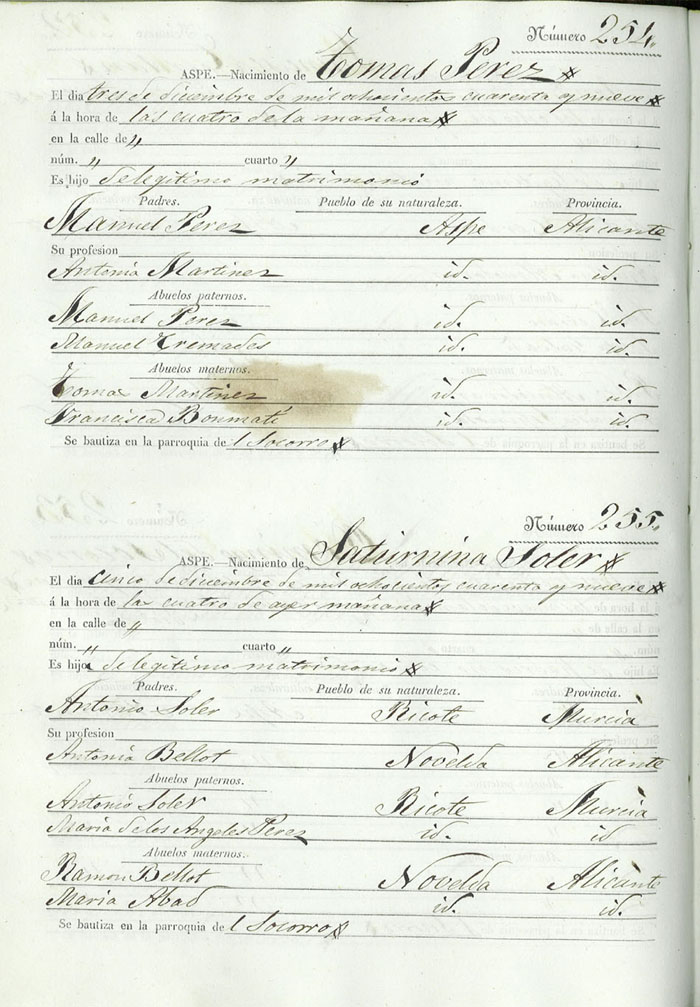 Número 254.
ASPE.—Nacimiento de Tomas Perez
El dia tres de diciembre de mil ochocientos cuarenta y nueve
á la hora de las cuatro de la mañana
en la calle de "
núm. " cuarto "
Es hijo de legitimo matrimonio
Padres. Pueblo de su naturaleza. Provincia.
Manuel Perez Aspe Alicante
Su profesion
Antonia Martinez id. id.
Abuelos paternos.
Manuel Perez id. id.
Manuel Cremades id. id.
Abuelos maternos.
Tomas Martinez id. id.
Francisca Bonmati id. id.
Se bautiza en la parroquia de l Socorro
Número 255.
ASPE.—Nacimiento de Saturnina Soler
El dia cinco de diciembre de mil ochocientos cuarenta y nueve
á la hora de las cuatro de ayer mañana
en la calle de "
núm. " cuarto "
Es hijo de legitimo matrimonio
Padres. Pueblo de su naturaleza. Provincia.
Antonio Soler Ricote Murcia
Su profesion
Antonia Bellot Novelda Alicante
Abuelos paternos.
Antonio Soler Ricote Murcia
Maria de los Angeles Perez id. id
Abuelos maternos.
Ramon Bellot Novelda Alicante
Maria Abad id. id.
Se bautiza en la parroquia de l Socorro